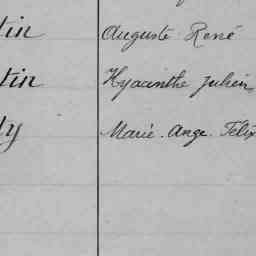 tin Auguste René
tin Hyacinthe Julien
dy Marie. Ange. Félix